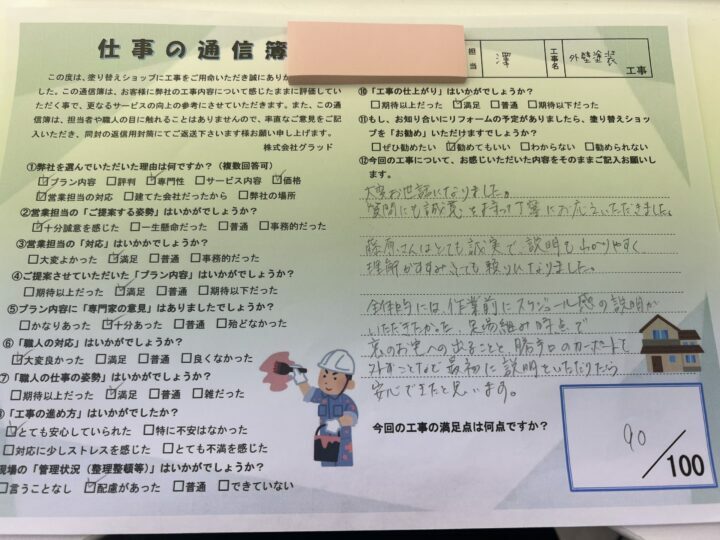 仕事の通信簿
担当
澤
工事名
外壁塗装
工事
この度は、塗り替えショップに工事をご用命いただき誠にありが
した。この通信簿は、お客様に弊社の工事内容について感じたままに評価してい
ただく事で、更なるサービスの向上の参考にさせていただきます。また、この通
信簿は、担当者や職人の目に触れることはありませんので、率直なご意見をご記
入いただき、同封の返信用封筒にてご返送下さいます様お願い申し上げます。
株式会社グラッド
①弊社を選んでいただいた理由は何ですか？（複数回答可）
☑プラン内容 □評判 ☑専門性 □サービス内容 ☑価格
☑営業担当の対応 □建てた会社だったから □弊社の場所
②営業担当の「ご提案する姿勢」はいかがでしょうか？
☑十分誠意を感じた □一生懸命だった □普通 □事務的だった
③営業担当の「対応」はいかがでしょうか？
□大変よかった ☑満足 □普通 □事務的だった
④ご提案させていただいた「プラン内容」はいかがでしょうか？
□期待以上だった ☑満足 □普通 □期待以下だった
⑤プラン内容に「専門家の意見」はありましたでしょうか？
□かなりあった ☑十分あった □普通 □殆どなかった
⑥「職人の対応」はいかがでしょうか？
☑大変良かった □満足 □普通 □良くなかった
⑦「職人の仕事の姿勢」はいかがでしょうか？
□期待以上だった ☑満足 □普通 □雑だった
「工事の進め方」はいかがでしたか？
☑とても安心していられた □特に不安はなかった
□対応に少しストレスを感じた □とても不満を感じた
現場の「管理状況（整理整頓等）」はいかがでしょうか？
□言うことなし ☑配慮があった □普通 □できていない
⑩「工事の仕上がり」はいかがでしょうか？
□期待以上だった ☑満足 □普通 □期待以下だった
⑪もし、お知り合いにリフォームの予定がありましたら、塗り替えショッ
プを「お勧め」いただけますでしょうか？
□ぜひ勧めたい ☑勧めてもいい □わからない □勧められない
⑫今回の工事について、お感じいただいた内容をそのままご記入お願いし
ます。
大変お世話になりました。
質問にも誠意を持って丁寧にお応えいただきました。
藤原さんはとても誠実で、説明もわかりやすく
理解がすすみとても頼りになりました。
全体的には、作業前にスケジュール感の説明が
いただきたかった。足場組み時点で
裏のお宅への出ることと、勝手口のカーポートて
外すことなど最初に説明をいただけたら
安心できたと思います。
今回の工事の満足点は何点ですか？
90
/100